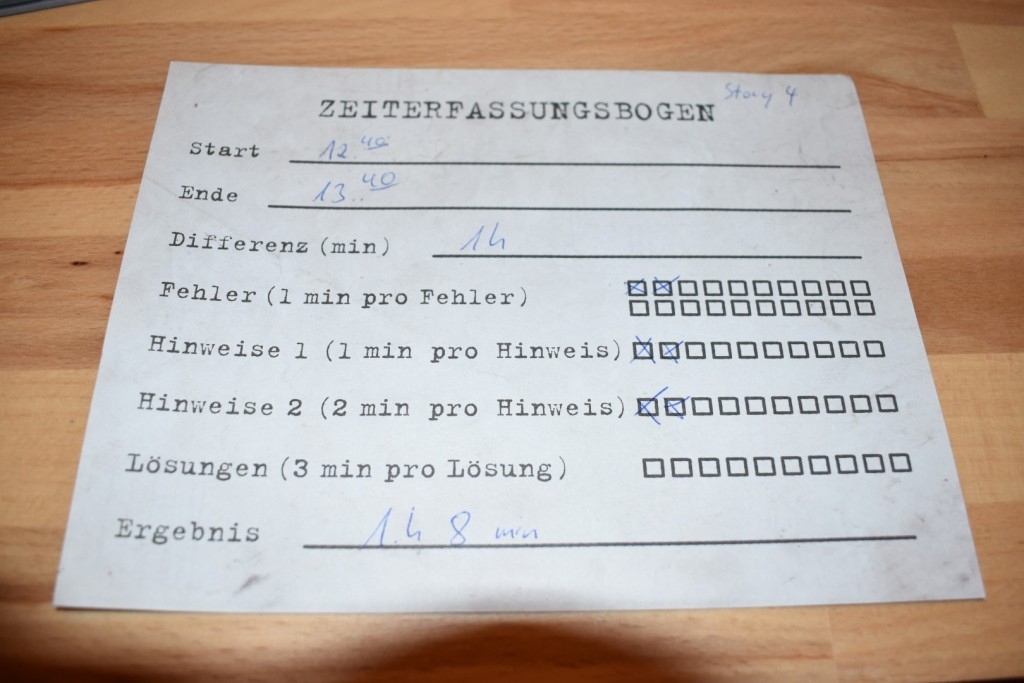 Story 4
ZEITERFASSUNGSBOGEN
Start 12.40
Ende 13.40
Differenz (min) 1h
Fehler (1 min pro Fehler)
Hinweise 1 (1 min pro Hinweis)
Hinweise 2 (2 min pro Hinweis)
Lösungen (3 min pro Lösung)
Ergebnis 1h 8 min